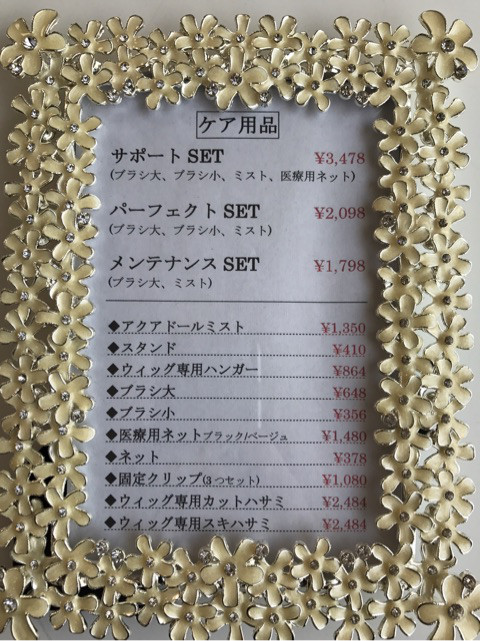 ケア用品
サポート SET ¥3,478
(ブラシ大、ブラシ小、ミスト、医療用ネット)
パーフェクト SET ¥2,098
(ブラシ大、ブラシ小、ミスト)
メンテナンス SET ¥1,798
(ブラシ大、ミスト)
◆アクアドールミスト ¥1,350
◆スタンド ¥410
◆ウィッグ専用ハンガー ¥864
◆ブラシ大 ¥648
◆ブラシ小 ¥356
◆医療用ネットブラック/ベージュ ¥1,480
◆ネット ¥378
◆固定クリップ(3つセット) ¥1,080
◆ウィッグ専用カットハサミ ¥2,484
◆ウィッグ専用スキハサミ ¥2,484